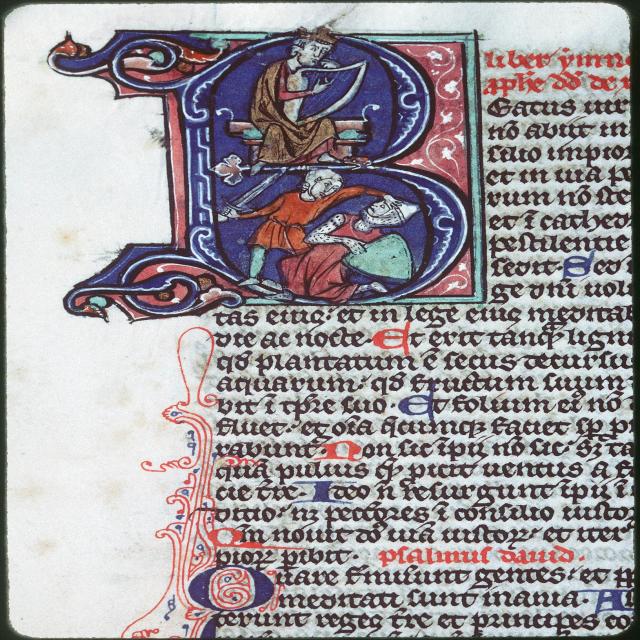 liber ymno
aphe dd de
Beatus uir
nō abiit in
silio impio
et in uia pe
rum nō ste
et ī cathed
pestilentie
sedit. Sed
ge dnī uol
tas eius: et in lege eius meditab
die ac nocte. Et erit tanq lign
qd plantatum ē secus decursu
aquarum: qd fructum suum
bit ī tpre suo. Et folium ei nō
fluet: et oīa qcumq faciet sp p
rabunt. Non sic īpii nō sic: sz ta
quā puluis q picit uentus a fa
cie tre. Ideo n resurgunt ipii ī
dicio: nz peccores ī consilio iusto
Qm nouit dō uiā iustor: et iter
pior pibit. psalmus dauid
Quare fremuerunt gentes: et pp
meditati sunt inania. A
terunt reges tre et principes co